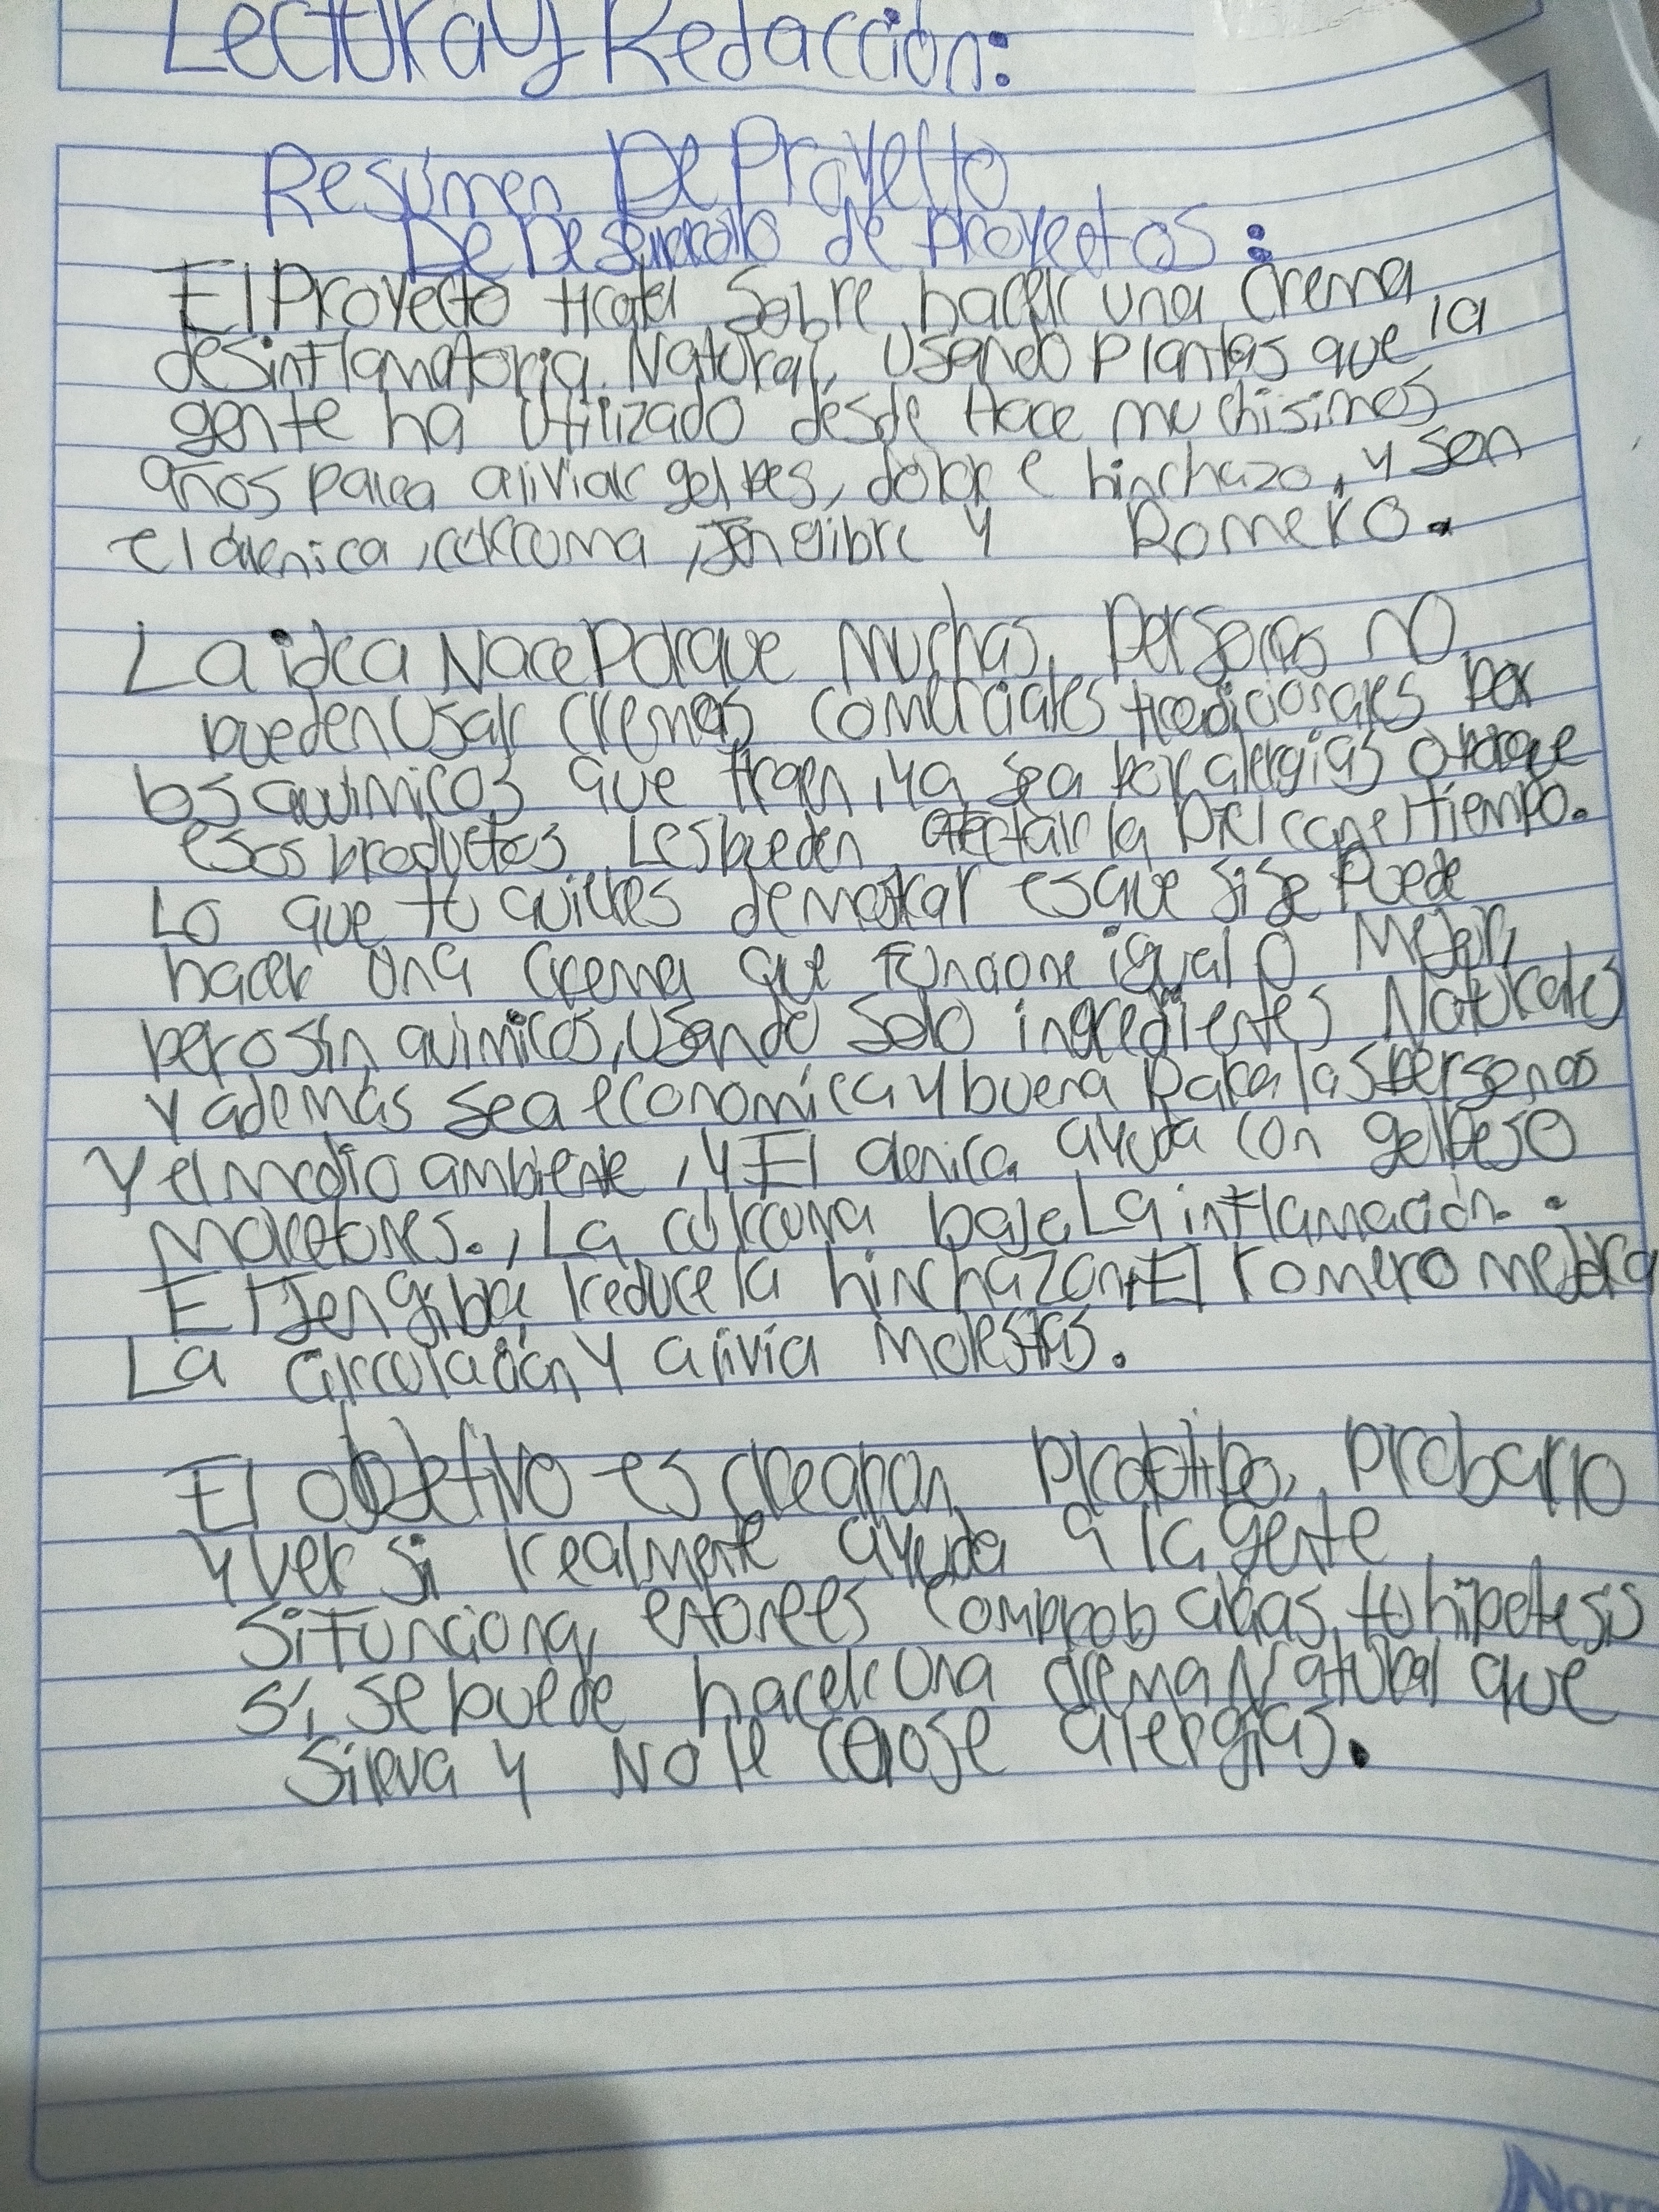 Lectura y Redacción:
Resúmen De Proyecto
De Desarrollo de proyectos:
El Proyecto trata sobre hacer una crema
desinflamatoria Natural, usando plantas que la
gente ha utilizado desde hace muchisimos
años para aliviar golpes, dolor e hinchazo, y son
el arnica, cúrcuma, Jengibre y Romero.
La idea Nace Porque muchas personas no
pueden usar cremas comerciales tradicionales por
los químicos que traen, ya sea por alergias o porque
esos productos Les pueden afectar la piel con el tiempo.
Lo que tú quieres demostrar es que si se puede
hacer una crema que funcione igual o Mejor,
pero sin químicos, usando solo ingredientes Naturales
y además sea económica y buena para las personas
y el medio ambiente, y El arnica ayuda con golpes o
moretones., La cúrcuma baja La inflamación.
El Jengibre reduce la hinchazon, El romero mejora
La circulación y alivia molestias.
El objetivo es crear un prototipo, probarlo
y ver si realmente ayuda a la gente
si funciona, entonces comprobarias tu hipotesis
sí, se puede hacer una crema Natural que
sirva y No te cause alergias.
Norma